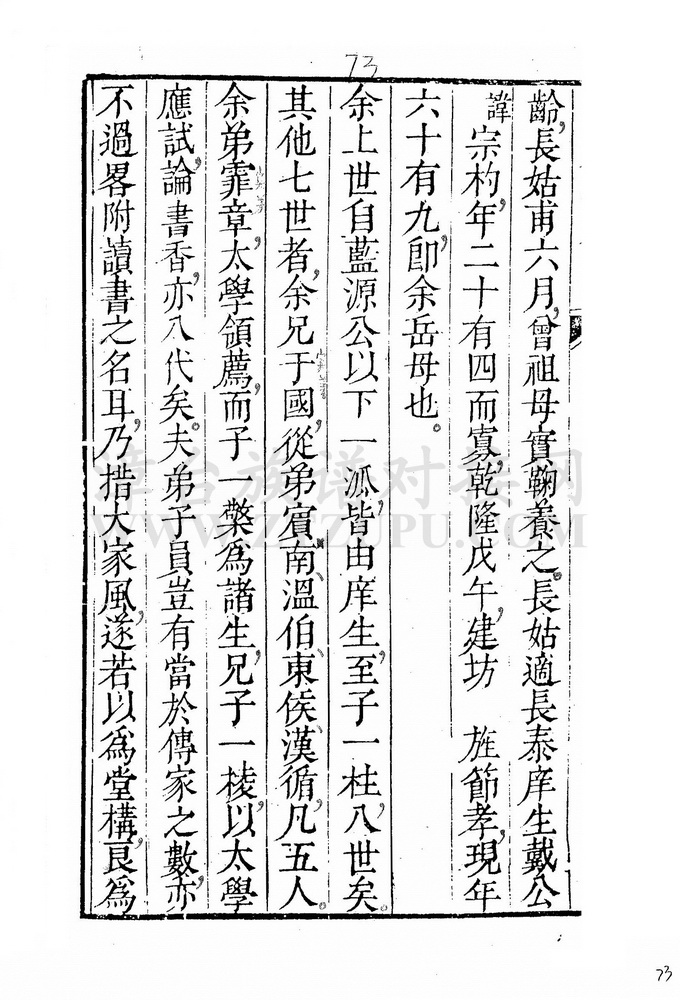 73
齡，長姑甫六月，曾祖母實鞠養之。長姑適長泰庠生戴公
諱宗杓，年二十有四而寡，乾隆戊午，建坊　旌節孝，現年
六十有九，卽余岳母也。
余上世自藍源公以下一派，皆由庠生，至子一柱，八世矣。
其他七世者，余兄于國，從弟賓南、溫伯、東侯、漢循，凡五人。
余弟霏章，太學領薦，而子一檠爲諸生，兄子一棱，以太學
應試，論書香，亦八代矣。夫弟子員豈有當於傳家之數，亦
不過畧附讀書之名耳，乃措大家風，遂若以爲堂構，良爲
漳台族谱对接网
WWW.ZTZUPU.COM
73